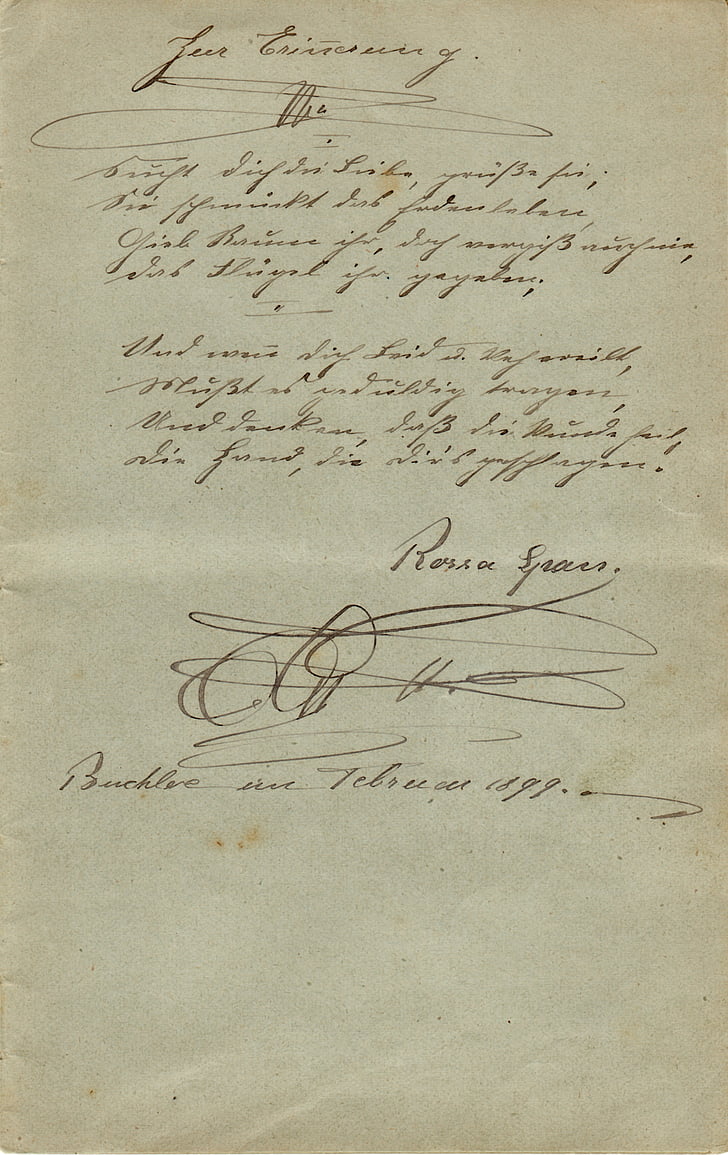 Zur Erinnerung.
Sucht dich die Liebe, grüße sie;
Sie schmückt das Erdenleben,
Gieb Raum ihr, doch vergiß auch nie,
das Flügel ihr gegeben;
"
Und wen̄ dich Leid u. Weh ereilt,
Mußt es geduldig tragen,
Und denken, daß die Wunde heilt,
die Hand, die dir's geschlagen.
Rossa
Buchloe im Februar 1899.